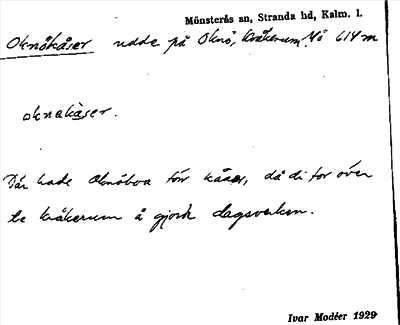 Mönsterås sn, Stranda hd, Kalm. l.
Oknökåser udde på Oknö, Kråkerum Mö 614 m
oknakåser.
Där hade Oknöboa förr kåser, då di for över
te kråkerum å gjorde dagsverken.
Ivar Modéer 1929